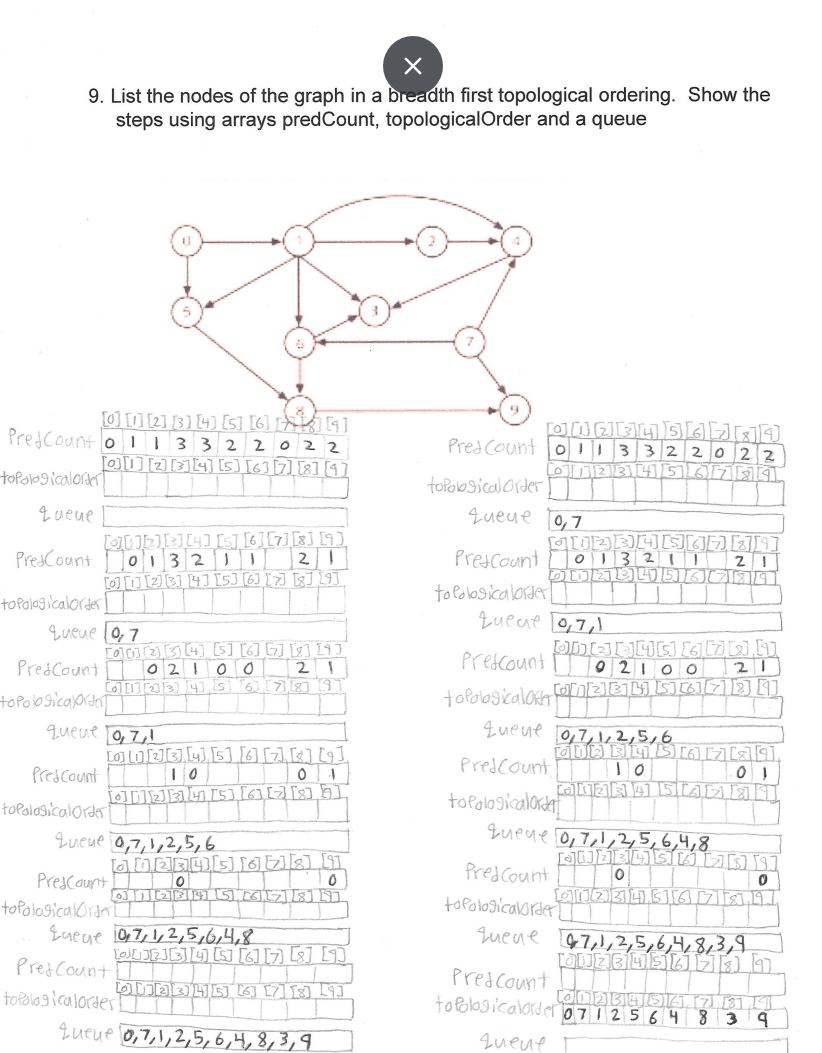 9. List the nodes of the graph in a breadth first topological ordering. Show the
steps using arrays predCount, topologicalOrder and a queue
0 1 2 4
5 3
6 7
8 9
[0] [1] [2] [3] [4] [5] [6] [7] [8] [9]
PredCount 0 1 1 3 3 2 2 0 2 2
[0] [1] [2] [3] [4] [5] [6] [7] [8] [9]
topologicalorder
queue
[0] [1] [2] [3] [4] [5] [6] [7] [8] [9]
PredCount 0 1 3 2 1 1 2 1
[0] [1] [2] [3] [4] [5] [6] [7] [8] [9]
topologicalorder
queue 0, 7
[0] [1] [2] [3] [4] [5] [6] [7] [8] [9]
PredCount 0 2 1 0 0 2 1
[0] [1] [2] [3] [4] [5] [6] [7] [8] [9]
topologicalorder
queue 0, 7, 1
[0] [1] [2] [3] [4] [5] [6] [7] [8] [9]
PredCount 1 0 0 1
[0] [1] [2] [3] [4] [5] [6] [7] [8] [9]
topologicalorder
queue 0, 7, 1, 2, 5, 6
[0] [1] [2] [3] [4] [5] [6] [7] [8] [9]
PredCount 0 0
[0] [1] [2] [3] [4] [5] [6] [7] [8] [9]
topologicalorder
queue 0, 7, 1, 2, 5, 6, 4, 8
[0] [1] [2] [3] [4] [5] [6] [7] [8] [9]
PredCount
[0] [1] [2] [3] [4] [5] [6] [7] [8] [9]
topologicalorder
queue 0, 7, 1, 2, 5, 6, 4, 8, 3, 9
[0] [1] [2] [3] [4] [5] [6] [7] [8] [9]
PredCount 0 1 1 3 3 2 2 0 2 2
[0] [1] [2] [3] [4] [5] [6] [7] [8] [9]
topologicalorder
queue 0, 7
[0] [1] [2] [3] [4] [5] [6] [7] [8] [9]
PredCount 0 1 3 2 1 1 2 1
[0] [1] [2] [3] [4] [5] [6] [7] [8] [9]
topologicalorder
queue 0, 7, 1
[0] [1] [2] [3] [4] [5] [6] [7] [8] [9]
PredCount 0 2 1 0 0 2 1
[0] [1] [2] [3] [4] [5] [6] [7] [8] [9]
topologicalorder
queue 0, 7, 1, 2, 5, 6
[0] [1] [2] [3] [4] [5] [6] [7] [8] [9]
PredCount 1 0 0 1
[0] [1] [2] [3] [4] [5] [6] [7] [8] [9]
topologicalorder
queue 0, 7, 1, 2, 5, 6, 4, 8
[0] [1] [2] [3] [4] [5] [6] [7] [8] [9]
PredCount 0 0
[0] [1] [2] [3] [4] [5] [6] [7] [8] [9]
topologicalorder
queue 0, 7, 1, 2, 5, 6, 4, 8, 3, 9
[0] [1] [2] [3] [4] [5] [6] [7] [8] [9]
PredCount
[0] [1] [2] [3] [4] [5] [6] [7] [8] [9]
topologicalorder 0 7 1 2 5 6 4 8 3 9
queue